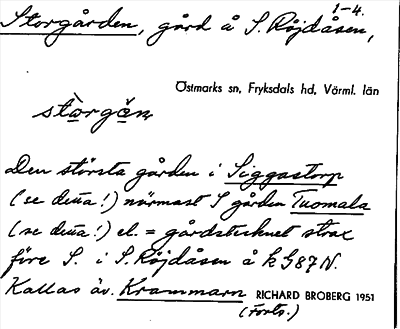 1-4.
Storgården, gård å S. Röjdåsen,
Östmarks sn, Fryksdals hd, Värml. län
stòrgän
Den största gården i Siggastorp
(se detta!) närmast S gården Tuomala
(se detta!) el. = gårdstecknet strax
före S. i S. Röjdåsen å k G87N.
Kallas äv. Krammarn RICHARD BROBERG 1951
(Forts.)